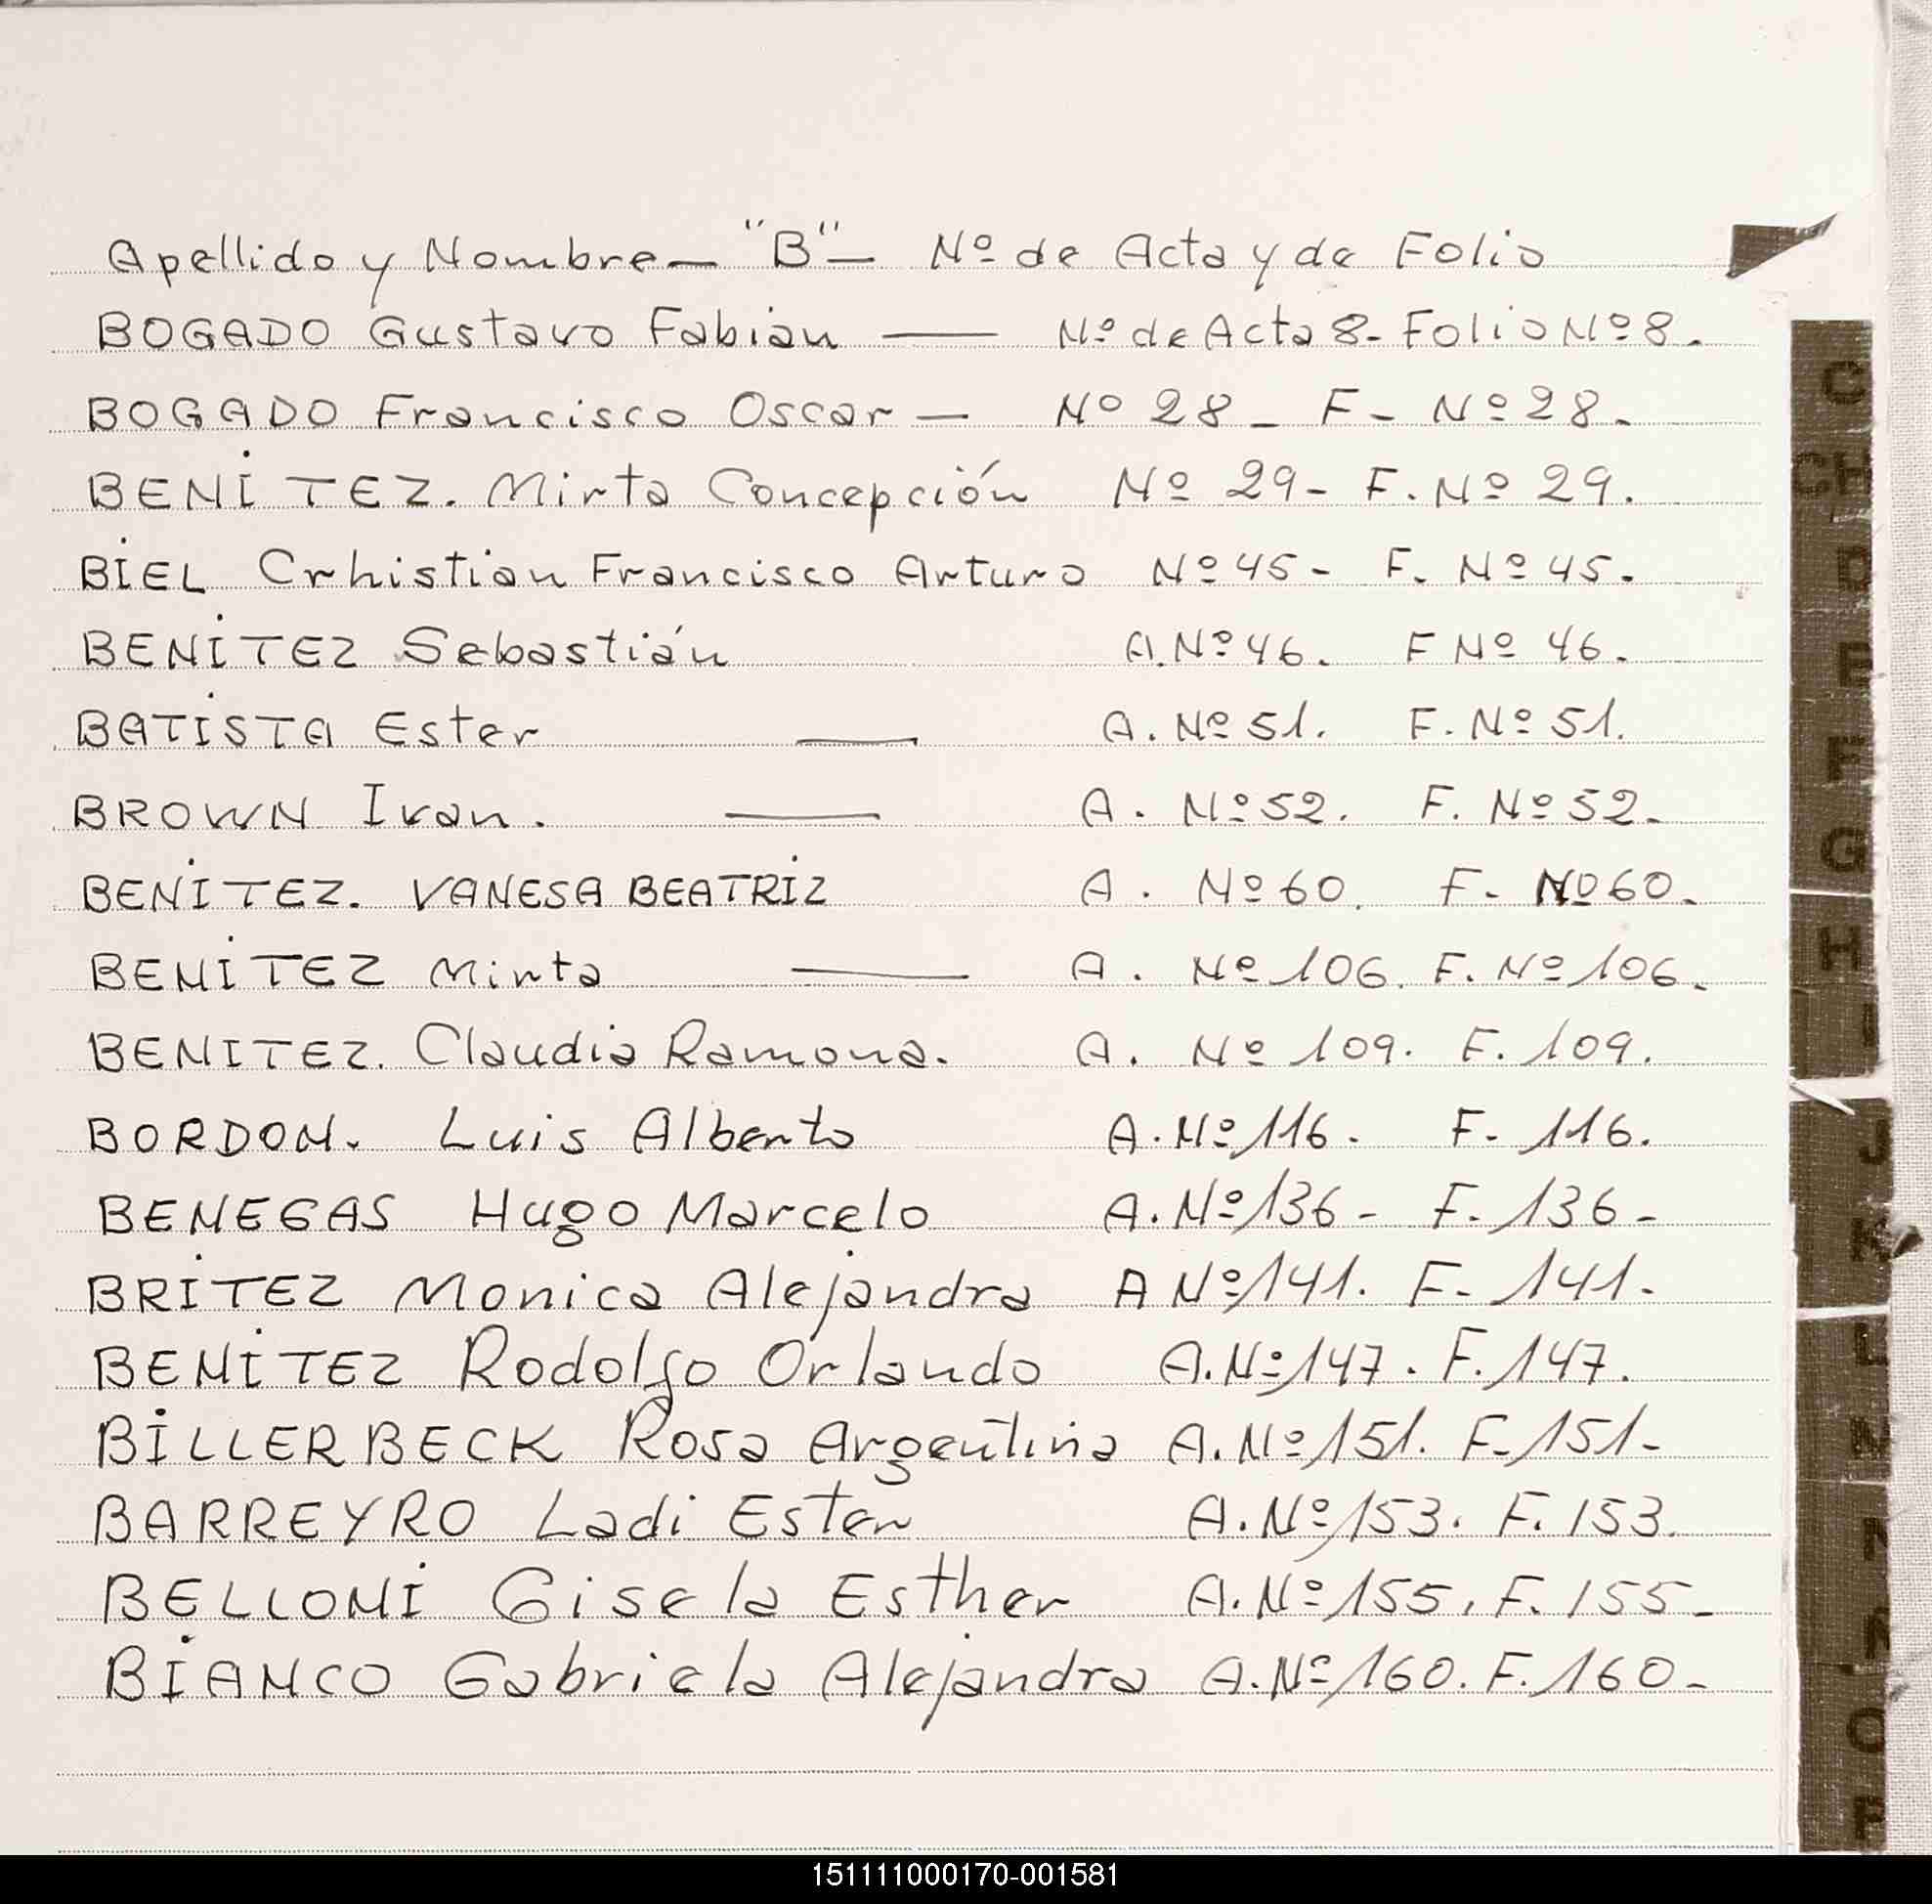 Apellido y Nombre — "B" — Nº de Acta y de Folio
BOGADO Gustavo Fabian — Nº de Acta 8 - Folio Nº 8.
BOGADO Francisco Oscar — Nº 28 - F - Nº 28.
BENITEZ. Mirta Concepción Nº 29 - F. Nº 29.
BIEL Crhistian Francisco Arturo Nº 45 - F. Nº 45.
BENITEZ Sebastián A. Nº 46. F Nº 46.
BATISTA Ester — A. Nº 51. F. Nº 51.
BROWN Ivan. — A. Nº 52. F. Nº 52.
BENITEZ. VANESA BEATRIZ A. Nº 60. F. Nº 60.
BENITEZ Mirta — A. Nº 106. F. Nº 106.
BENITEZ. Claudia Ramona. A. Nº 109. F. 109.
BORDON. Luis Alberto A. Nº 116. F. 116.
BENEGAS Hugo Marcelo A. Nº 136 - F. 136 -
BRITEZ Monica Alejandra A Nº 141. F. 141.
BENITEZ Rodolfo Orlando A. Nº 147. F. 147.
BILLERBECK Rosa Argentina A. Nº 151. F. 151 -
BARREYRO Ladi Ester A. Nº 153. F. 153.
BELLONI Gisela Esther A. Nº 155. F. 155 -
BIANCO Gabriela Alejandra A. Nº 160. F. 160 -
C
CH
D
E
F
G
H
I
J
K
L
M
N
Ñ
O
P
151111000170-001581